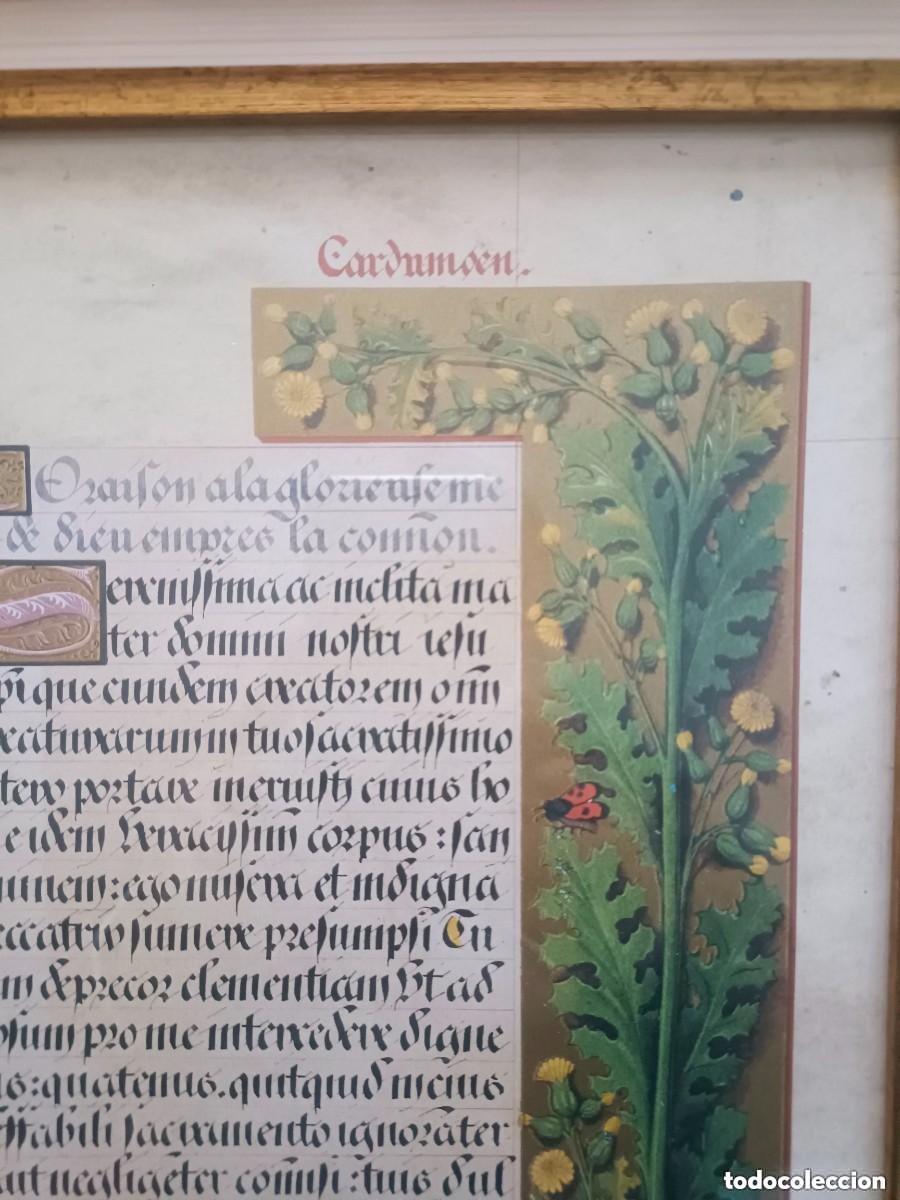 Cardumoen.
Oraison a la glorieuse me
de dieu empres la com̄ion.
Serenissima ac inclita ma
ter domini nostri iesu
xp̄i que eundem creatorem om̄i
creaturarum in tuo sacratissimo
utero portare meruisti cuius ho
die idem veracissim̄ corpus : san
guinem : ego misera et indigna
peccatrix sumere presumpsi Tu
am deprecor clementiam vt ad
ipsum pro me intercedere digne
ris : quatenus . quitquid in eius
sacramento ignorāter
aut negligēter com̄isi : tuis dul
todocoleccion